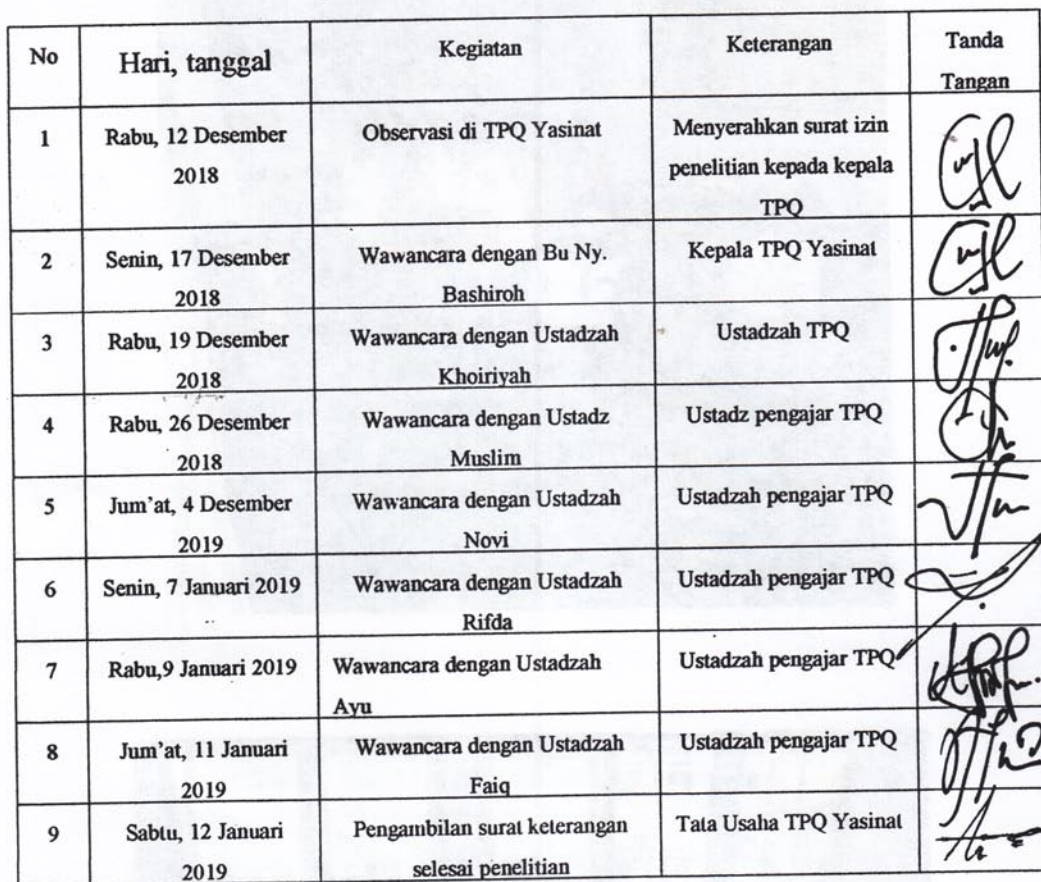 No
Hari, tanggal
Kegiatan
Keterangan
Tanda
Tangan
1
Rabu, 12 Desember
2018
Observasi di TPQ Yasinat
Menyerahkan surat izin
penelitian kepada kepala
TPQ
2
Senin, 17 Desember
2018
Wawancara dengan Bu Ny.
Bashiroh
Kepala TPQ Yasinat
3
Rabu, 19 Desember
2018
Wawancara dengan Ustadzah
Khoiriyah
Ustadzah TPQ
4
Rabu, 26 Desember
2018
Wawancara dengan Ustadz
Muslim
Ustadz pengajar TPQ
5
Jum'at, 4 Desember
2019
Wawancara dengan Ustadzah
Novi
Ustadzah pengajar TPQ
6
Senin, 7 Januari 2019
Wawancara dengan Ustadzah
Rifda
Ustadzah pengajar TPQ
7
Rabu,9 Januari 2019
Wawancara dengan Ustadzah
Ayu
Ustadzah pengajar TPQ
8
Jum'at, 11 Januari
2019
Wawancara dengan Ustadzah
Faiq
Ustadzah pengajar TPQ
9
Sabtu, 12 Januari
2019
Pengambilan surat keterangan
selesai penelitian
Tata Usaha TPQ Yasinat